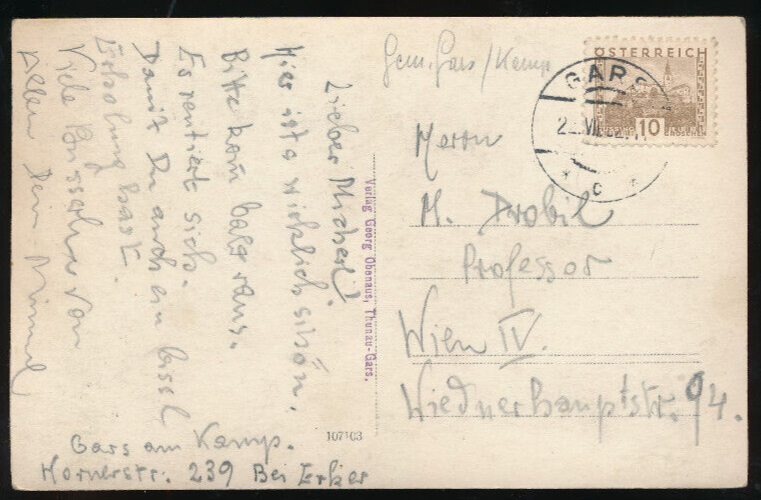 Lieber Micherl!
Hier ists wirklich schön.
Bitte kom balg raus.
Es rentiert sich.
Damit Du auch ein bissl
Erholung hast.
Viele Busserln von
Allen Dein Mimel
Gars am Kamp.
Hornerstr. 239 Bei Erker
107103
Verlag Georg Obenaus, Thunau-Gars.
Gem. Gars/Kamp
ÖSTERREICH
10
GROSCHEN
GARS
Herrn
M. Drobil
Professor
Wien IV.
Wiednerhauptstr. 94.